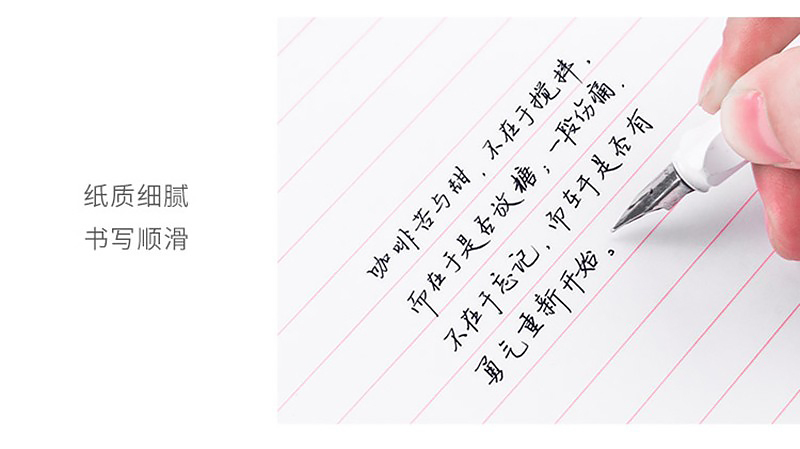 纸质细腻
书写顺滑
咖啡苦与甜,不在于搅拌,
而在于是否放糖;一段伤痛,
不在于忘记,而在于是否有
勇气重新开始。